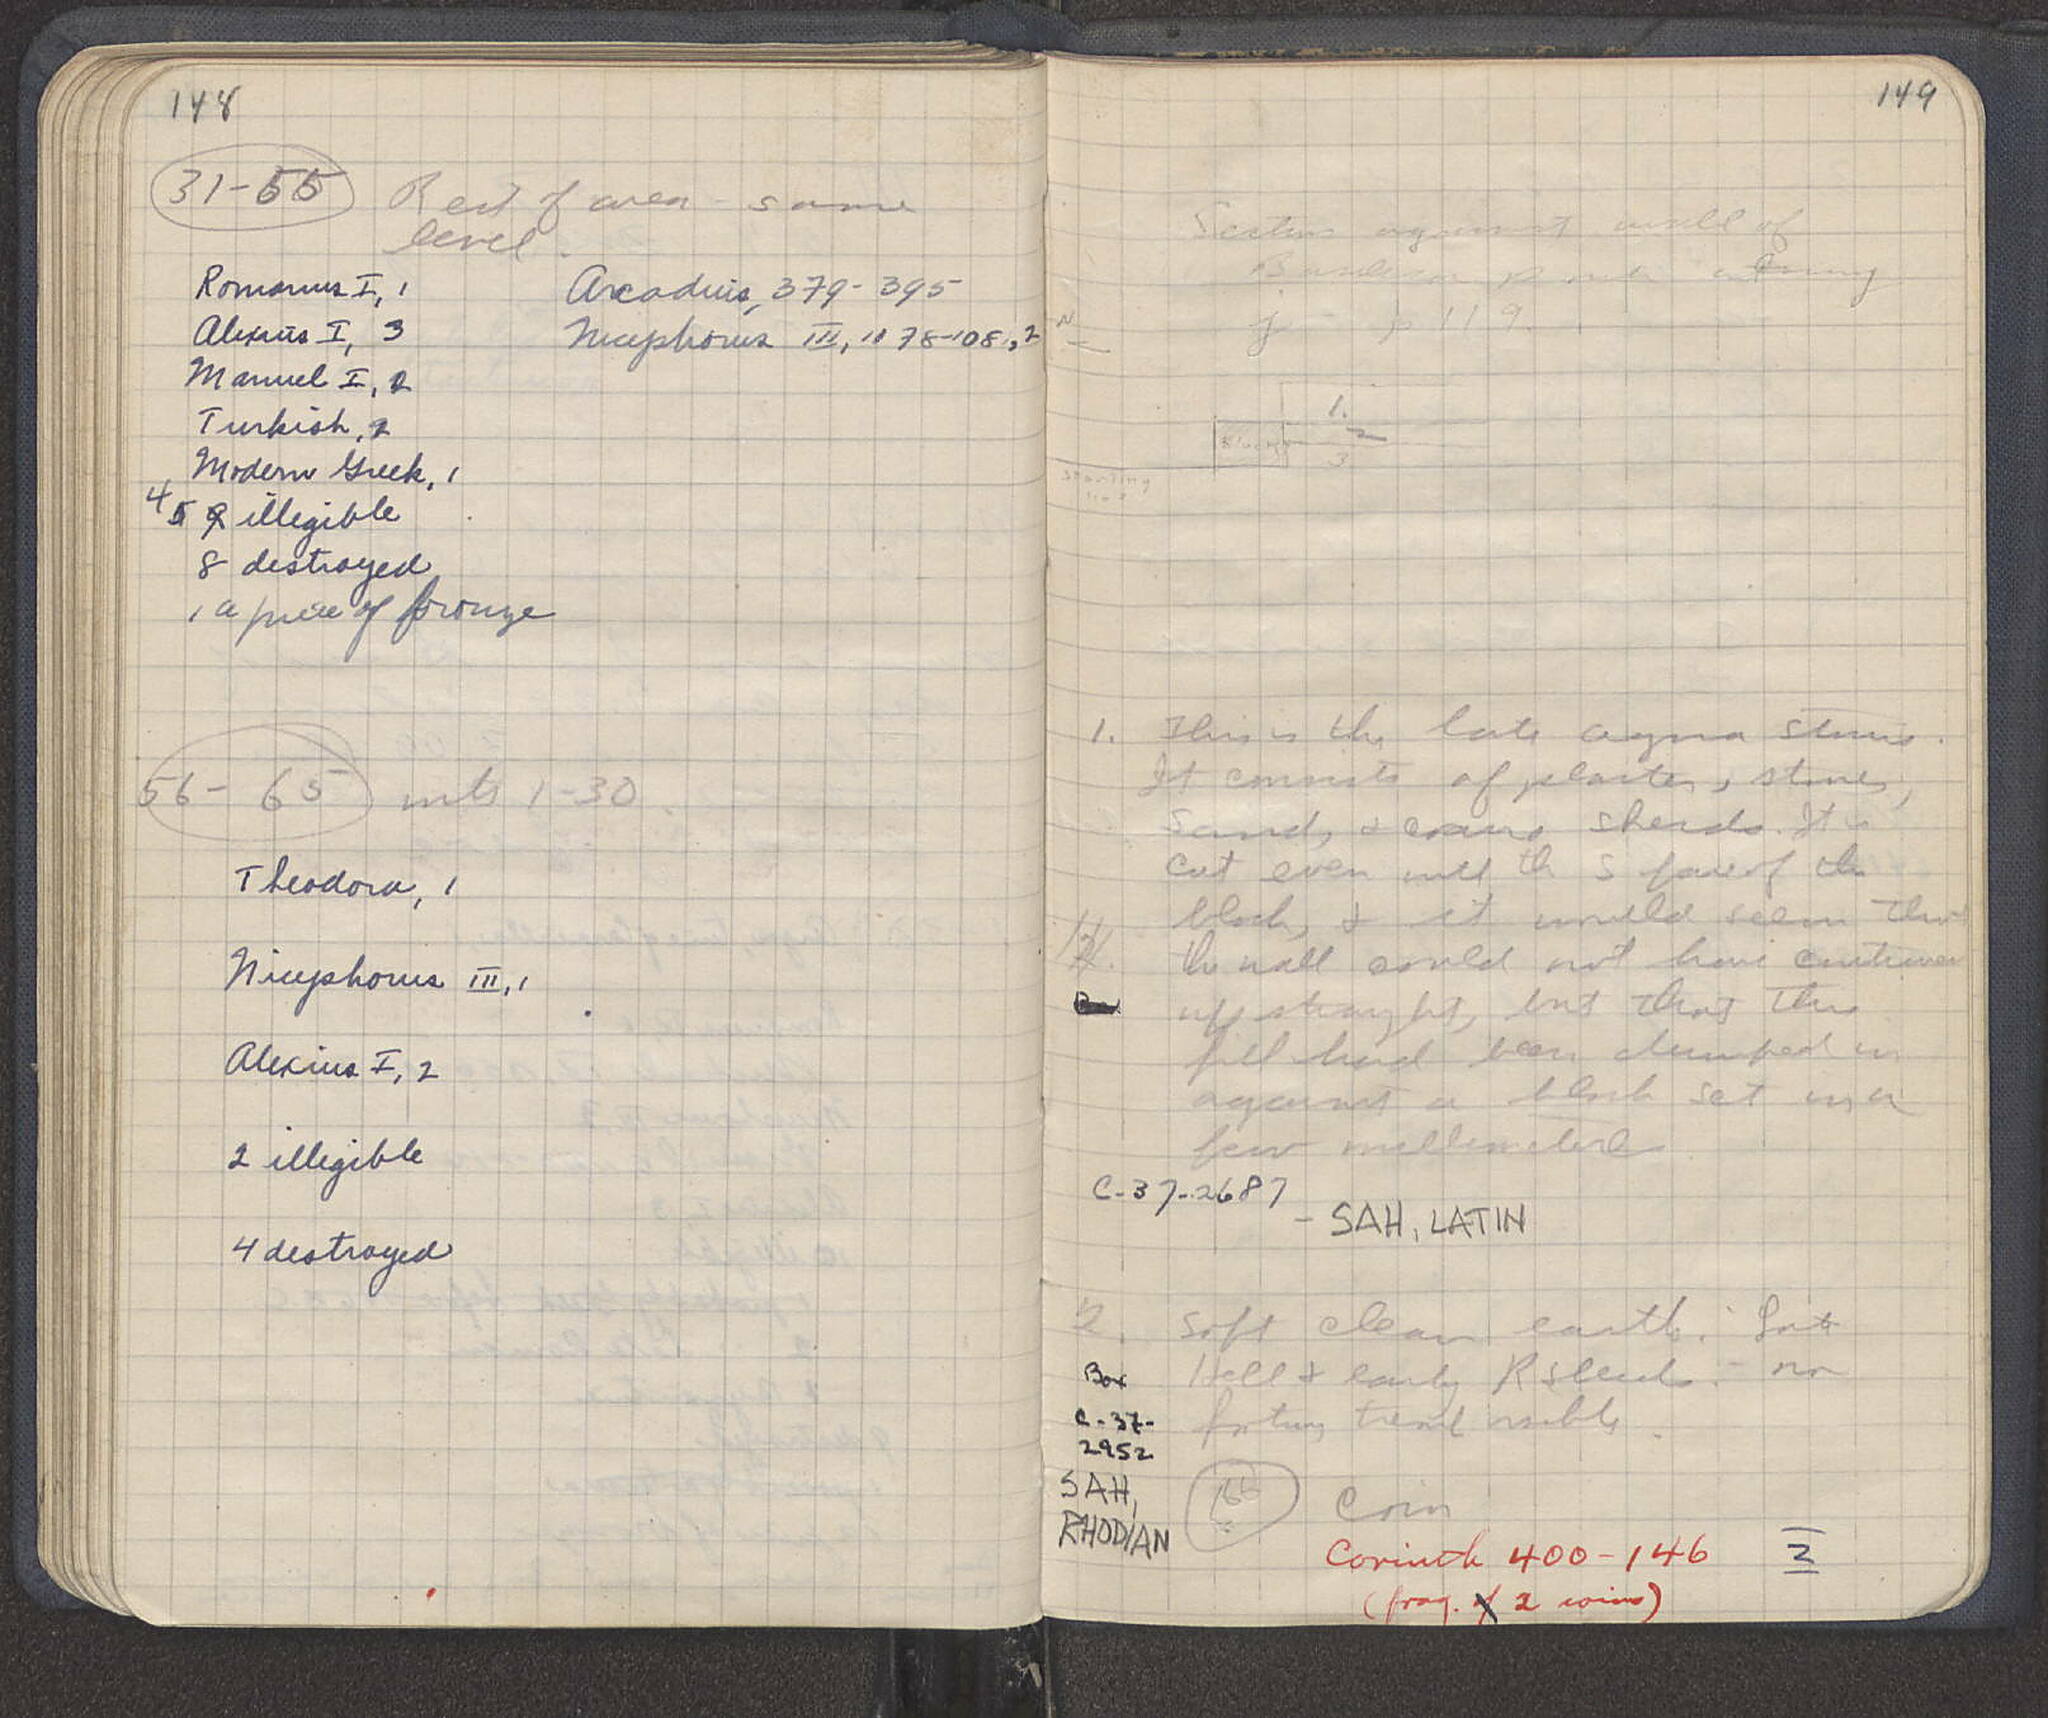 148
31-55 Rest of area - same
level.
Romanus I, 1
Alexius I, 3
Manuel I, 2
Turkish, 2
Modern Greek, 1
4 5 9 illegible
8 destroyed
1 a piece of bronze
Arcadius, 379-395
Nicephorus III, 1078-1081, 2
56-65 with 1-30.
Theodora, 1
Nicephorus III, 1
Alexius I, 2
2 illegible
4 destroyed
149
against wall of
p 119
N
1.
2
Block
3
starting
line
1. This is the late agora stereo.
It consists of plaster, stones,
sand, & coarse sherds. It is
cut even with the S face of the
block, & it would seem that
the wall could not have continued
up straight, but that this
fill had been dumped in
against a block set in a
few millimeters
C-37-2687
- SAH, LATIN
2. Soft clean earth. Lots
Hell & early R sherds - no
visible.
Box
C-37-
2952
SAH,
RHODIAN
166 Coin
Corinth 400-146
2
(frag. of 2 coins)